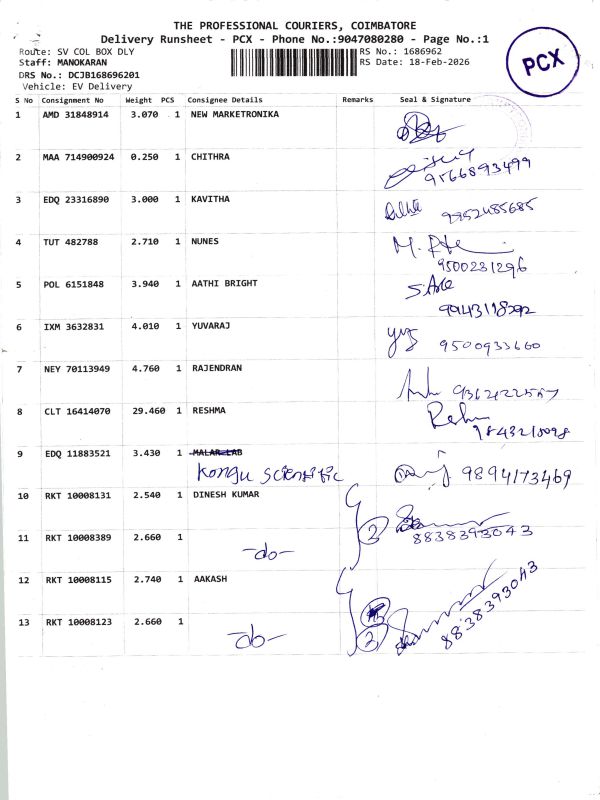 THE PROFESSIONAL COURIERS, COIMBATORE
Delivery Runsheet - PCX - Phone No.:9047080280 - Page No.:1
Route: SV COL BOX DLY
RS No.: 1686962
Staff: MANOKARAN
RS Date: 18-Feb-2026
DRS No.: DCJB168696201
Vehicle: EV Delivery
PCX
S No Consignment No Weight PCS Consignee Details Remarks Seal & Signature
1 AMD 31848914 3.070 1 NEW MARKETRONIKA
2 MAA 714900924 0.250 1 CHITHRA
9566893499
3 EDQ 23316890 3.000 1 KAVITHA
9952485685
4 TUT 482788 2.710 1 NUNES
9500231296
5 POL 6151848 3.940 1 AATHI BRIGHT
9943118292
6 IXM 3632831 4.010 1 YUVARAJ
9500933660
7 NEY 70113949 4.760 1 RAJENDRAN
8 CLT 16414070 29.460 1 RESHMA
9 EDQ 11883521 3.430 1 MALAR LAB
Kongu Scientific 9894173469
10 RKT 10008131 2.540 1 DINESH KUMAR
2 8838393043
11 RKT 10008389 2.660 1
-do-
12 RKT 10008115 2.740 1 AAKASH
8838393043
13 RKT 10008123 2.660 1
-do- 2